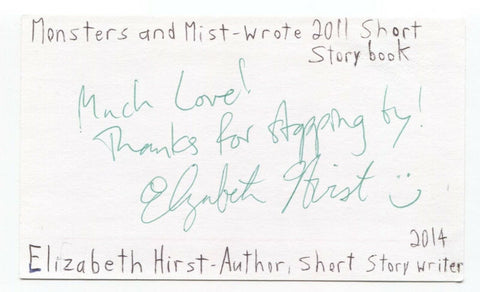 Monsters and Mist-Wrote 2011 Short
Story book
Much Love!
Thanks for stopping by!
Elizabeth Hirst :)
2014
Elizabeth Hirst-Author, Short Story writer